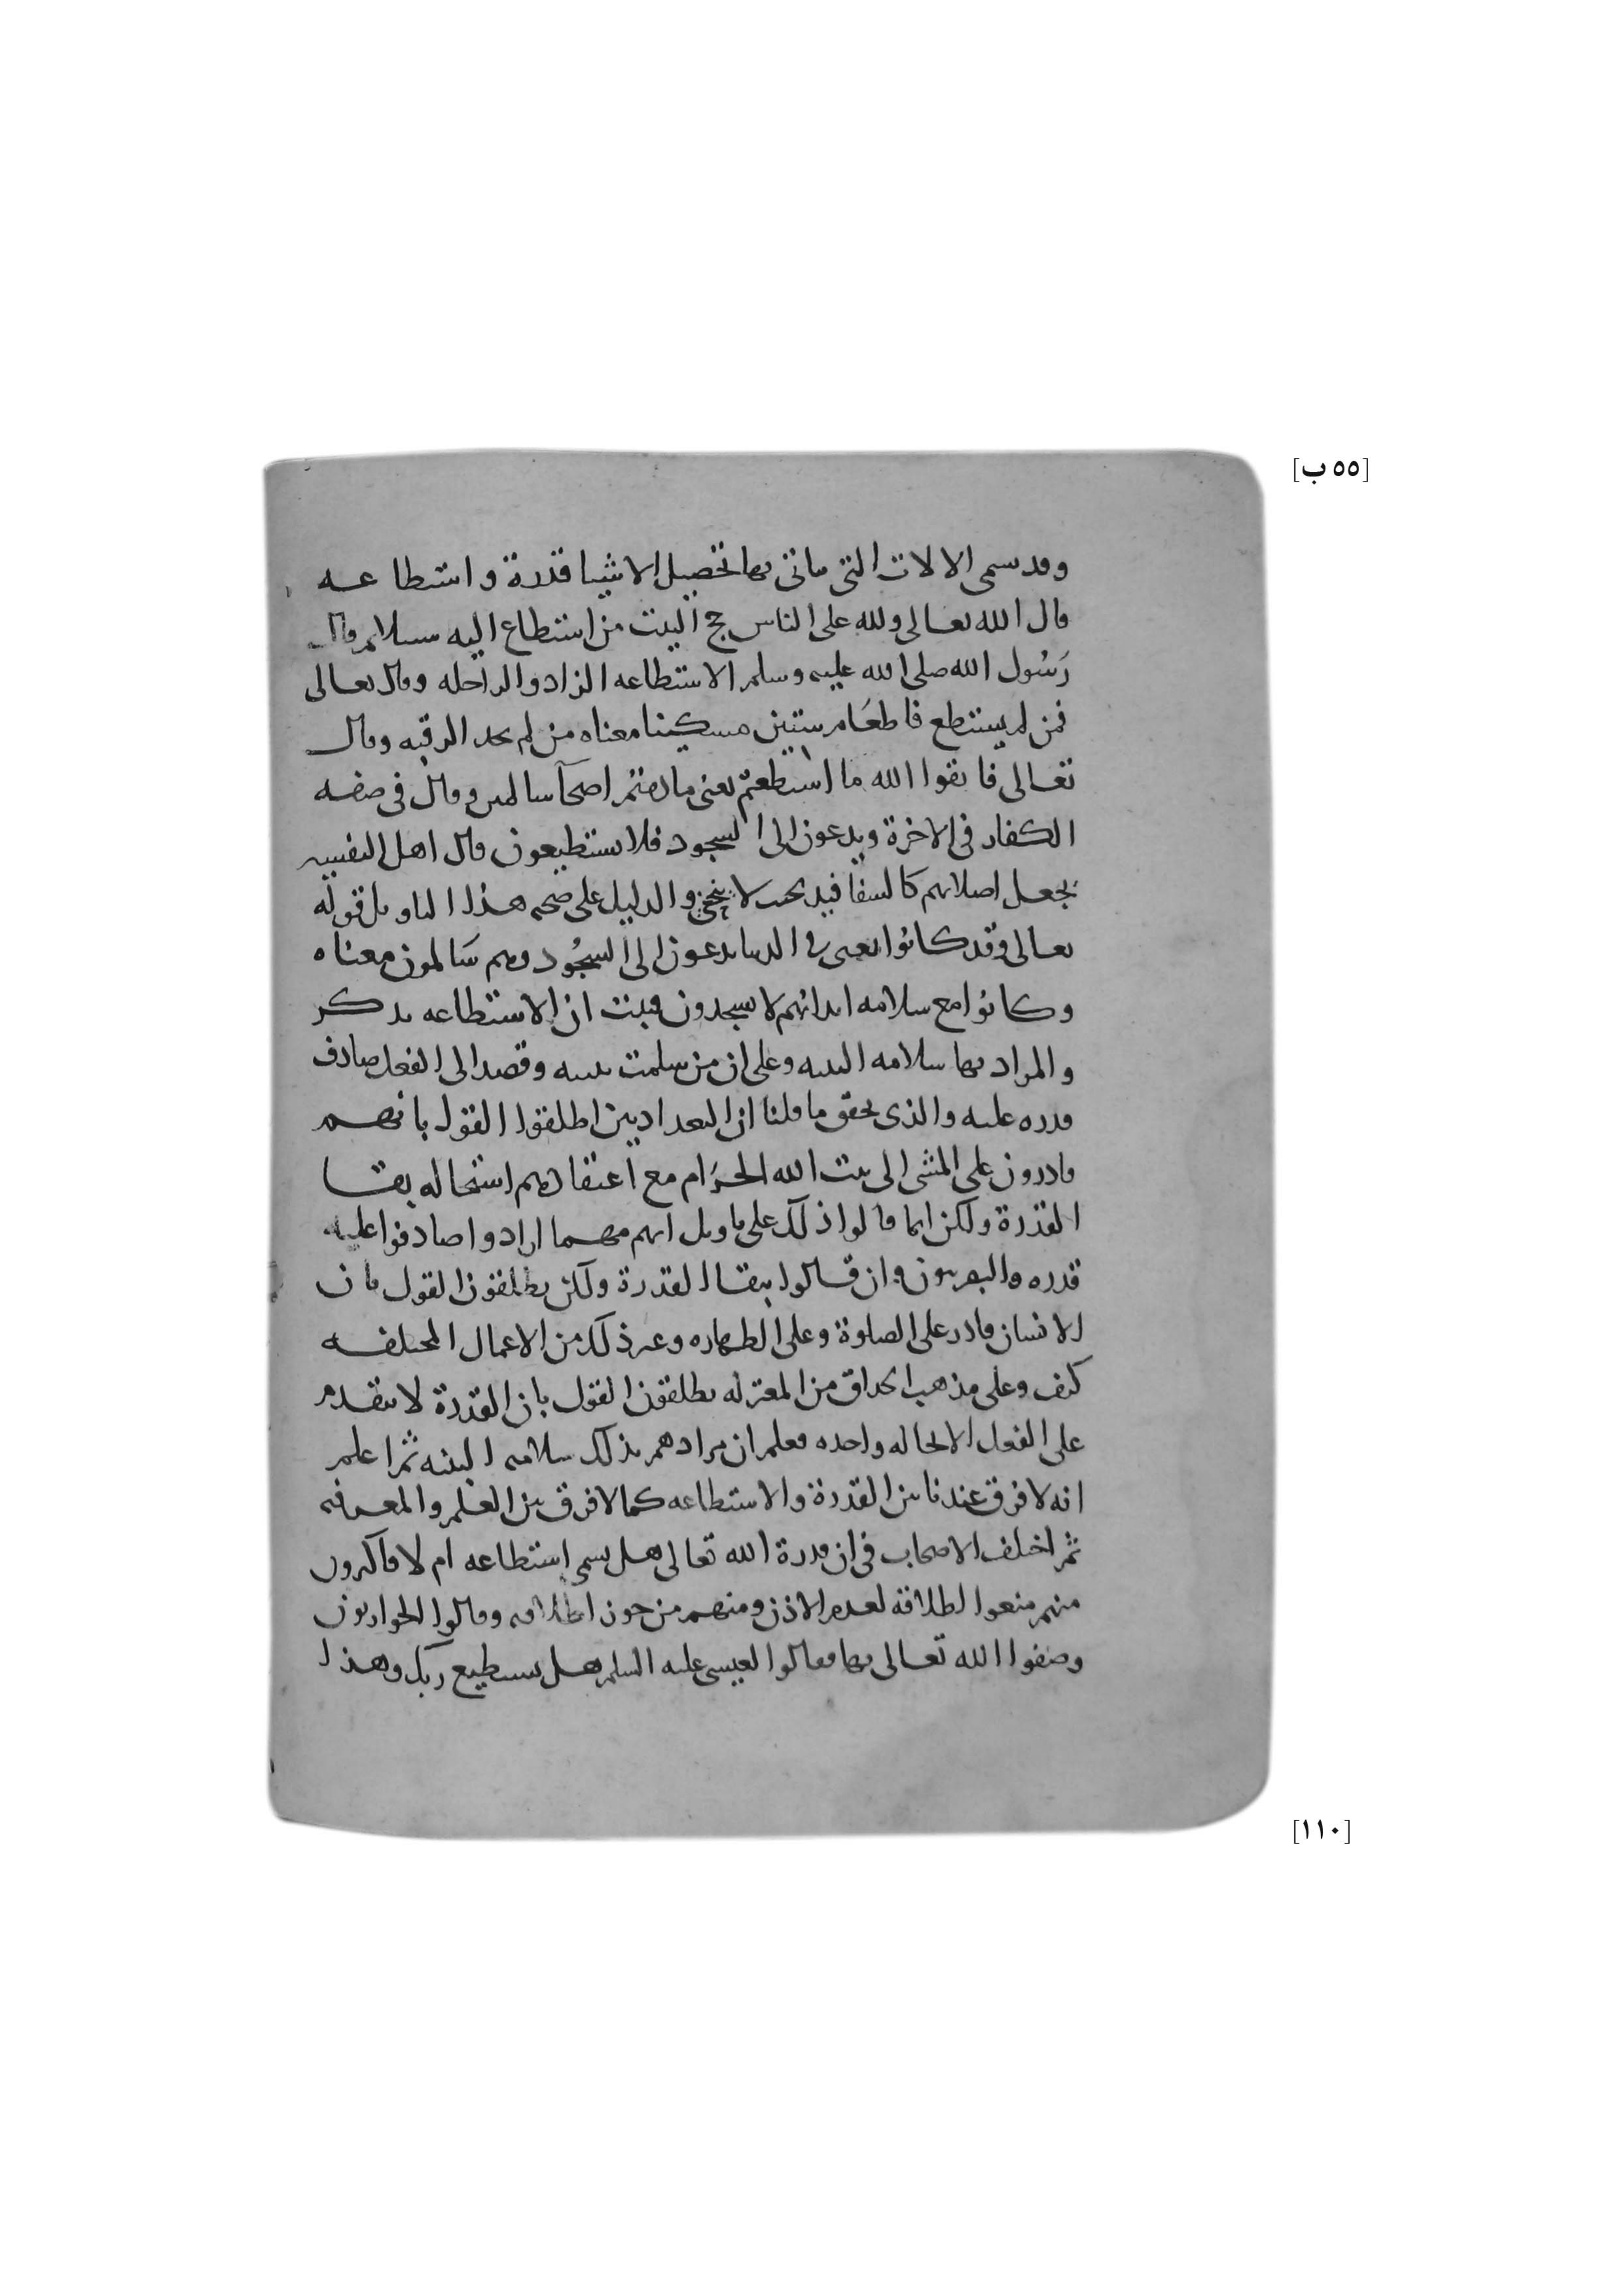 [٥٥ ب]
وقد سمى الالات التى ياتى بها تحصيل الاشيا قدرة واستطاعه
قال الله تعالى ولله على الناس حج البيت من استطاع اليه سبيلا وقال
رَسُول الله صلى الله عليه وسلم الاستطاعه الزاد والراحله وقال تعالى
فمن لم يستطع فاطعَام ستين مسكينا معناه من لم يجد الرقبه وقال
تعالى فاتقوا الله ما استطعتم يعنى ما دمتم اصحآ سالمين وقال فى صفه
الكفار فى الاخرة ويدعون الى السجود فلا يستطيعون قال اهل التفسير
يجعل اصلابهم كالسفافيد بحيث لا ينحنى والدليل على صحه هذا التاويل قوله
تعالى وقد كانوا يعنى فى الدنيا يدعون الى السجُود وهم سَالمون معناه
وكانوا مع سلامه ابدانهم لا يسجدون فبينت ان الاستطاعه يذكر
والمراد بها سلامه البنيه وعلى ان من سلمت بنيته وقصد الى الفعل صادف
قدره عليه والذى يحقق ما قلنا ان البغداديين اطلقوا القول بانهم
قادرون على المشى الى بيت الله الحرَام مع اعتقادهم استحاله بقا
القدرة ولكن انما قالوا ذلك على تاويل انهم مهما ارادوا صادفوا عليه
قدره والبصريون وان قالوا ببقا القدرة ولكن يطلقون القول بان
الانسان قادر على الصلوة وعلى الطهاره وغير ذلك من الاعمال المختلفه
كيف وعلى مذهب الحذاق من المعتزله يطلقون القول بان القدرة لا يتقدم
على الفعل الا بحاله واحده فعلم ان مرادهم بذلك سلامه البنيه ثم اعلم
انه لا فرق عندنا بين القدرة والاستطاعه كما لا فرق بين العلم والمعرفه
ثم اختلف الاصحاب فى ان قدرة الله تعالى هل يسمى استطاعه ام لا فاكثرون
منهم منعوا اطلاقه لعدم الاذن ومنهم من جوز اطلاقه وقالوا الحواريون
وصفوا الله تعالى بها فقالوا لعيسى عليه السلم هل يستطيع ربك وهذا
[١١٠]